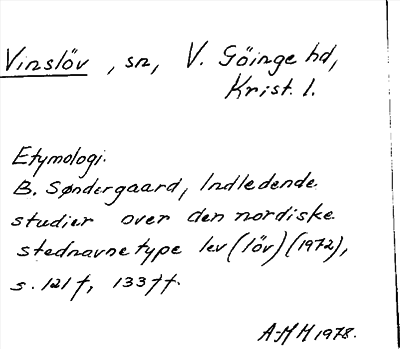 Vinslöv, sn, V. Göinge hd,
Krist. l.
Etymologi.
B. Søndergaard, Indledende
studier over den nordiske
stednavnetype lev (löv) (1972),
s. 121 f, 133 ff.
A-M H 1978.